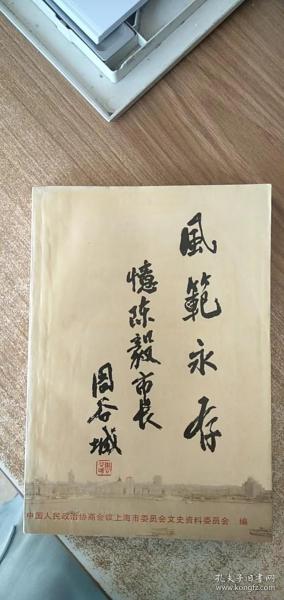 風範永存
憶陈毅市長
周谷城
中国人民政治协商会议上海市委员会文史资料委员会 编
孔夫子旧书网